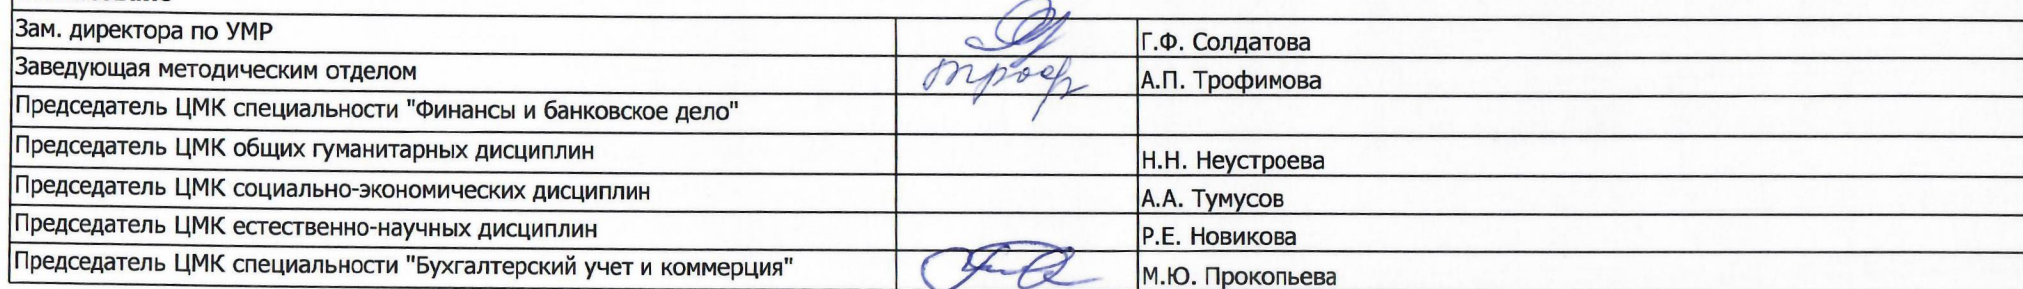 Зам. директора по УМР Г.Ф. Солдатова
Заведующая методическим отделом троф А.П. Трофимова
Председатель ЦМК специальности "Финансы и банковское дело"
Председатель ЦМК общих гуманитарных дисциплин Н.Н. Неустроева
Председатель ЦМК социально-экономических дисциплин А.А. Тумусов
Председатель ЦМК естественно-научных дисциплин Р.Е. Новикова
Председатель ЦМК специальности "Бухгалтерский учет и коммерция" М.Ю. Прокопьева